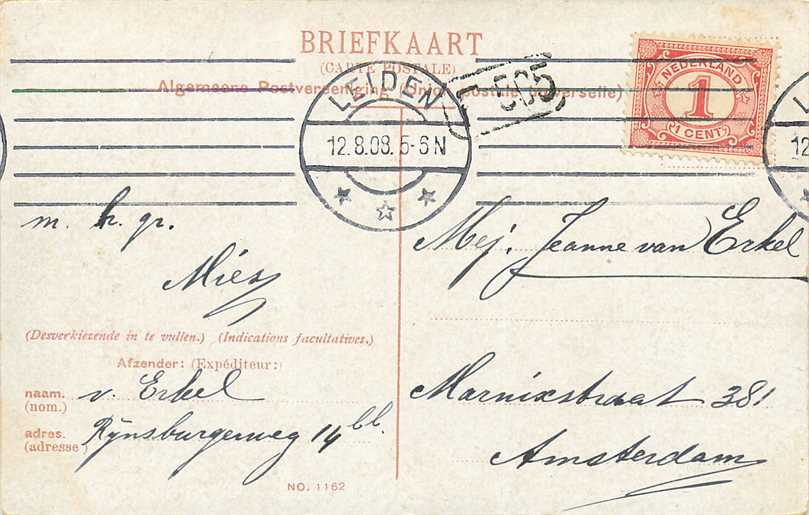 BRIEFKAART
(CARTE POSTALE)
Algemeene Postvereeniging (Union postale universelle)
LEIDEN
12.8.08. 5-6 N
505
NEDERLAND
1
(1 CENT)
12
m. h. gr.
Mies
Mej. Jeanne van Erkel
(Desverkiezende in te vullen.) (Indications facultatives.)
Afzender: (Expéditeur:)
naam. v. Erkel
(nom.)
adres. Rijnsburgerweg 14 bl.
(adresse)
Marnixstraat 381
Amsterdam
NO. 1162